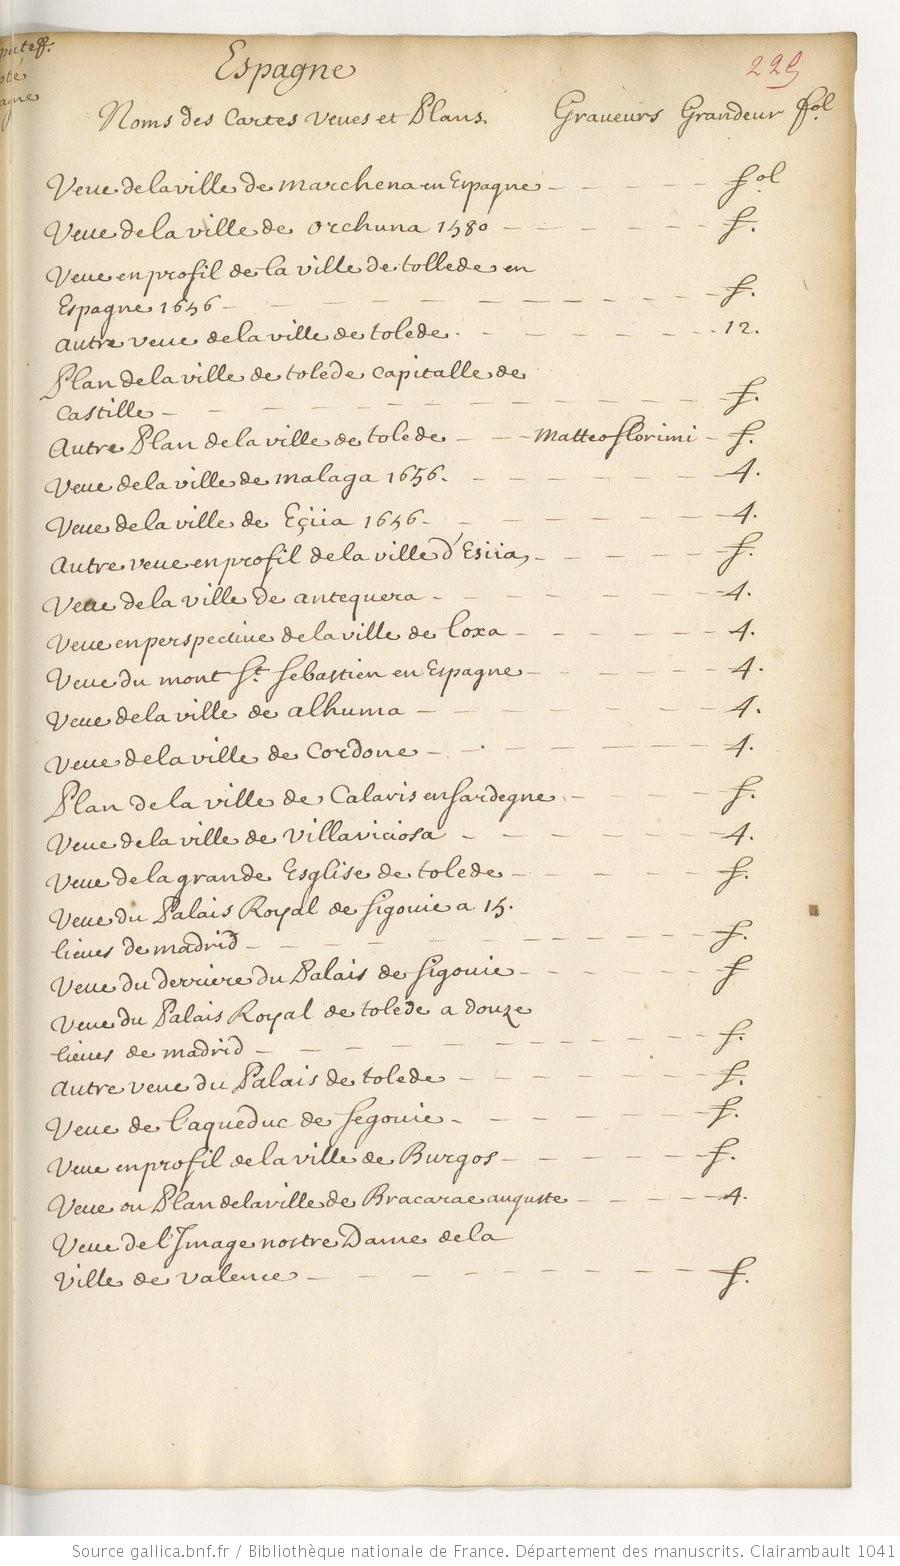 Espagne
229
Noms des Cartes Veues et Plans. Graveurs Grandeur fol.
Veue de la ville de marchena en Espagne - - - - - fol.
Veue de la ville de orchuna 1580 - - - - - - f.
Veue en profil de la ville de tollede en
Espagne 1656 - - - - - - - - - - - - f.
autre veue de la ville de tolede. - - - - - - - 12.
Plan de la ville de tolede capitalle de
Castille - - - - - - - - - - - - - - f.
Autre Plan de la ville de tolede - - - Matteo florimi - f.
Veue de la ville de malaga 1656. - - - - - - - 4.
Veue de la ville de Eçiia 1656. - - - - - - - 4.
Autre veue en profil de la ville d'Esiia, - - - - - f.
Veue de la ville de antequera - - - - - - - - 4.
Veue en perspective de la ville de loxa - - - - - - 4.
Veue du mont St. Sebastien en Espagne - - - - - 4.
Veue de la ville de alhuma - - - - - - - - 4.
Veue de la ville de Cordoue - - - - - - - - 4.
Plan de la ville de Calaris en Sardegne - - - - f.
Veue de la ville de Villaviciosa - - - - - - - 4.
Veue de la grande Esglise de tolede - - - - - - f.
Veue du Palais Royal de Sigovie a 15.
lieues de madrid - - - - - - - - - - - - f.
Veue du derriere du Palais de Sigovie - - - - - - f
Veue du Palais Royal de tolede a douze
lieues de madrid - - - - - - - - - - - f.
autre veue du Palais de tolede - - - - - - - f.
Veue de l'aqueduc de Segovie - - - - - - - f.
Veue en profil de la ville de Burgos - - - - - - f.
Veue ou Plan de la ville de Bracarae auguste - - - - 4.
Veue de l'Image nostre Dame de la
Ville de Valence - - - - - - - - - - f.
Source gallica.bnf.fr / Bibliothèque nationale de France. Département des manuscrits. Clairambault 1041